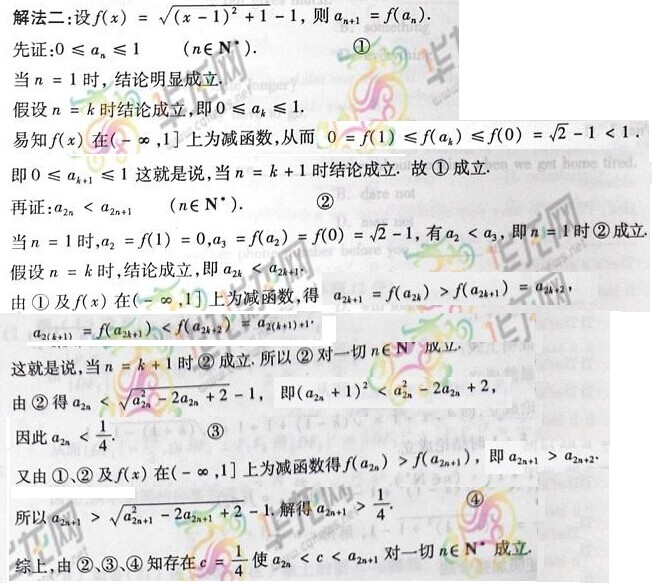 解法二:设f(x) = √((x − 1)² + 1) − 1, 则 aₙ₊₁ = f(aₙ).
先证:0 ≤ aₙ ≤ 1 (n∈N*). ①
当 n = 1 时, 结论明显成立.
假设 n = k 时结论成立,即 0 ≤ aₖ ≤ 1.
易知 f(x) 在(− ∞,1] 上为减函数,从而 0 = f(1) ≤ f(aₖ) ≤ f(0) = √2 − 1 < 1.
即 0 ≤ aₖ₊₁ ≤ 1 这就是说,当 n = k + 1 时结论成立. 故 ① 成立.
再证:a₂ₙ < a₂ₙ₊₁ (n∈N*). ②
当 n = 1 时,a₂ = f(1) = 0,a₃ = f(a₂) = f(0) = √2 − 1, 有 a₂ < a₃, 即 n = 1 时 ② 成立.
假设 n = k 时,结论成立,即 a₂ₖ < a₂ₖ₊₁.
由 ① 及 f(x) 在(− ∞,1] 上为减函数,得 a₂ₖ₊₁ = f(a₂ₖ) > f(a₂ₖ₊₁) = a₂ₖ₊₂,
a₂₍ₖ₊₁₎ = f(a₂ₖ₊₁) < f(a₂ₖ₊₂) = a₂₍ₖ₊₁₎₊₁.
这就是说,当 n = k + 1 时 ② 成立. 所以 ② 对一切 n∈N* 成立.
由 ② 得 a₂ₙ < √(a₂ₙ² − 2a₂ₙ + 2) − 1, 即(a₂ₙ + 1)² < a₂ₙ² − 2a₂ₙ + 2,
因此 a₂ₙ < 1/4. ③
又由 ①、② 及 f(x) 在(− ∞,1] 上为减函数得 f(a₂ₙ) > f(a₂ₙ₊₁), 即 a₂ₙ₊₁ > a₂ₙ₊₂.
所以 a₂ₙ₊₁ > √(a₂ₙ₊₁² − 2a₂ₙ₊₁ + 2) − 1. 解得 a₂ₙ₊₁ > 1/4. ④
综上,由 ②、③、④ 知存在 c = 1/4 使 a₂ₙ < c < a₂ₙ₊₁ 对一切 n∈N* 成立.